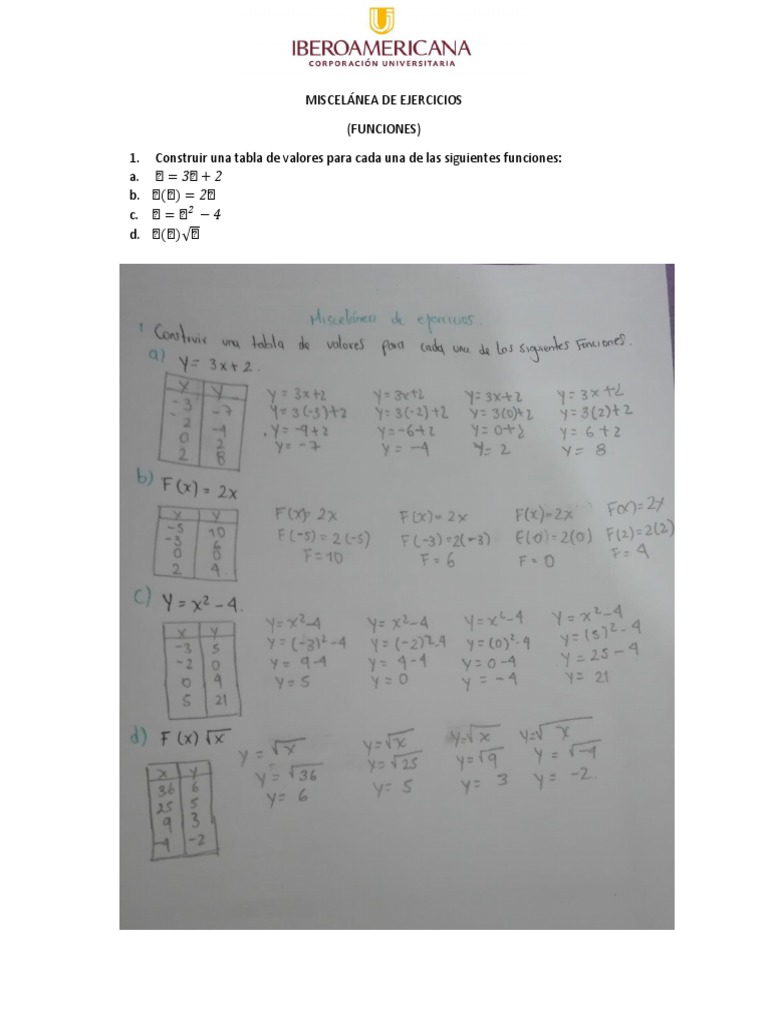 IBEROAMERICANA
CORPORACIÓN UNIVERSITARIA
MISCELÁNEA DE EJERCICIOS
(FUNCIONES)
1. Construir una tabla de valores para cada una de las siguientes funciones:
a. ⍰ = 3⍰ + 2
b. ⍰(⍰) = 2⍰
c. ⍰ = ⍰² − 4
d. ⍰(⍰)√⍰
Miscelánea de ejercicios.
1 Construir una tabla de valores para cada una de las siguientes Funciones.
a) y = 3x + 2.
x y
-3 -7
-2 -4
0 2
2 8
y = 3x+2 y = 3x+2 y = 3x+2 y = 3x+2
y = 3(-3)+2 y = 3(-2)+2 y = 3(0)+2 y = 3(2)+2
y = -9+2 y = -6+2 y = 0+2 y = 6+2
y = -7 y = -4 y = 2 y = 8
b) F(x) = 2x
x y
-5 10
-3 6
0 0
2 4
F(x) = 2x F(x) = 2x F(x) = 2x F(x) = 2x
F(-5) = 2(-5) F(-3) = 2(-3) F(0) = 2(0) F(2) = 2(2)
F = 10 F = 6 F = 0 F = 4
c) y = x² - 4.
x y
-3 5
-2 0
0 4
5 21
y = x²-4 y = x²-4 y = x²-4 y = x²-4
y = (-3)²-4 y = (-2)²-4 y = (0)²-4 y = (5)²-4
y = 9-4 y = 4-4 y = 0-4 y = 25-4
y = 5 y = 0 y = -4 y = 21
d) F(x) √x
x y
36 6
25 5
9 3
-4 -2
y = √x y = √x y = √x y = √x
y = √36 y = √25 y = √9 y = √-4
y = 6 y = 5 y = 3 y = -2.